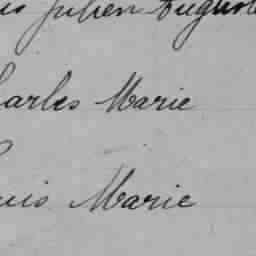 Julien Auguste
Charles Marie
Louis Marie